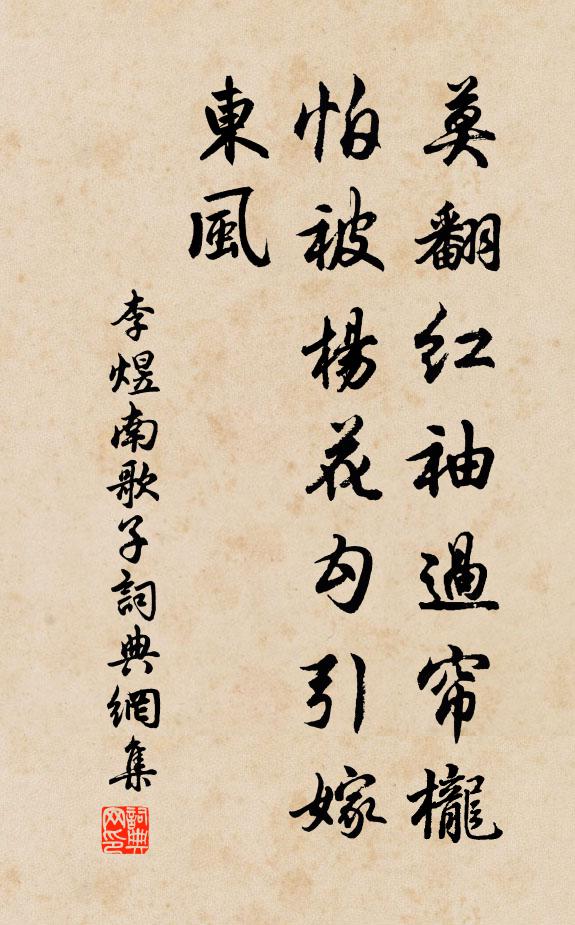 莫翻红袖過帘櫳
怕被楊花勾引嫁
東風
李煜南歌子詞典網集
詞典網印